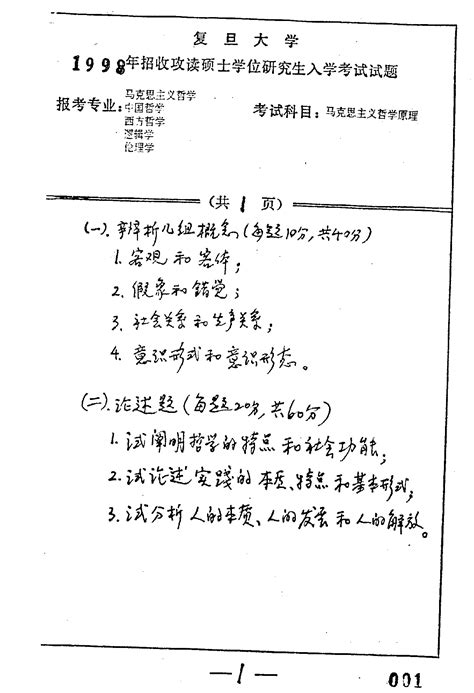 复旦大学
1998年招收攻读硕士学位研究生入学考试试题
报考专业：马克思主义哲学 考试科目：马克思主义哲学原理
中国哲学
西方哲学
逻辑学
伦理学
（共 1 页）
(一). 辨析几组概念(每题10分,共40分)
1. 客观和客体；
2. 假象和错觉；
3. 社会关系和生产关系；
4. 意识形式和意识形态。
(二). 论述题(每题20分,共60分)
1. 试阐明哲学的特点和社会功能；
2. 试论述实践的本质、特点和基本形式；
3. 试分析人的本质、人的发展和人的解放。
—1— 001